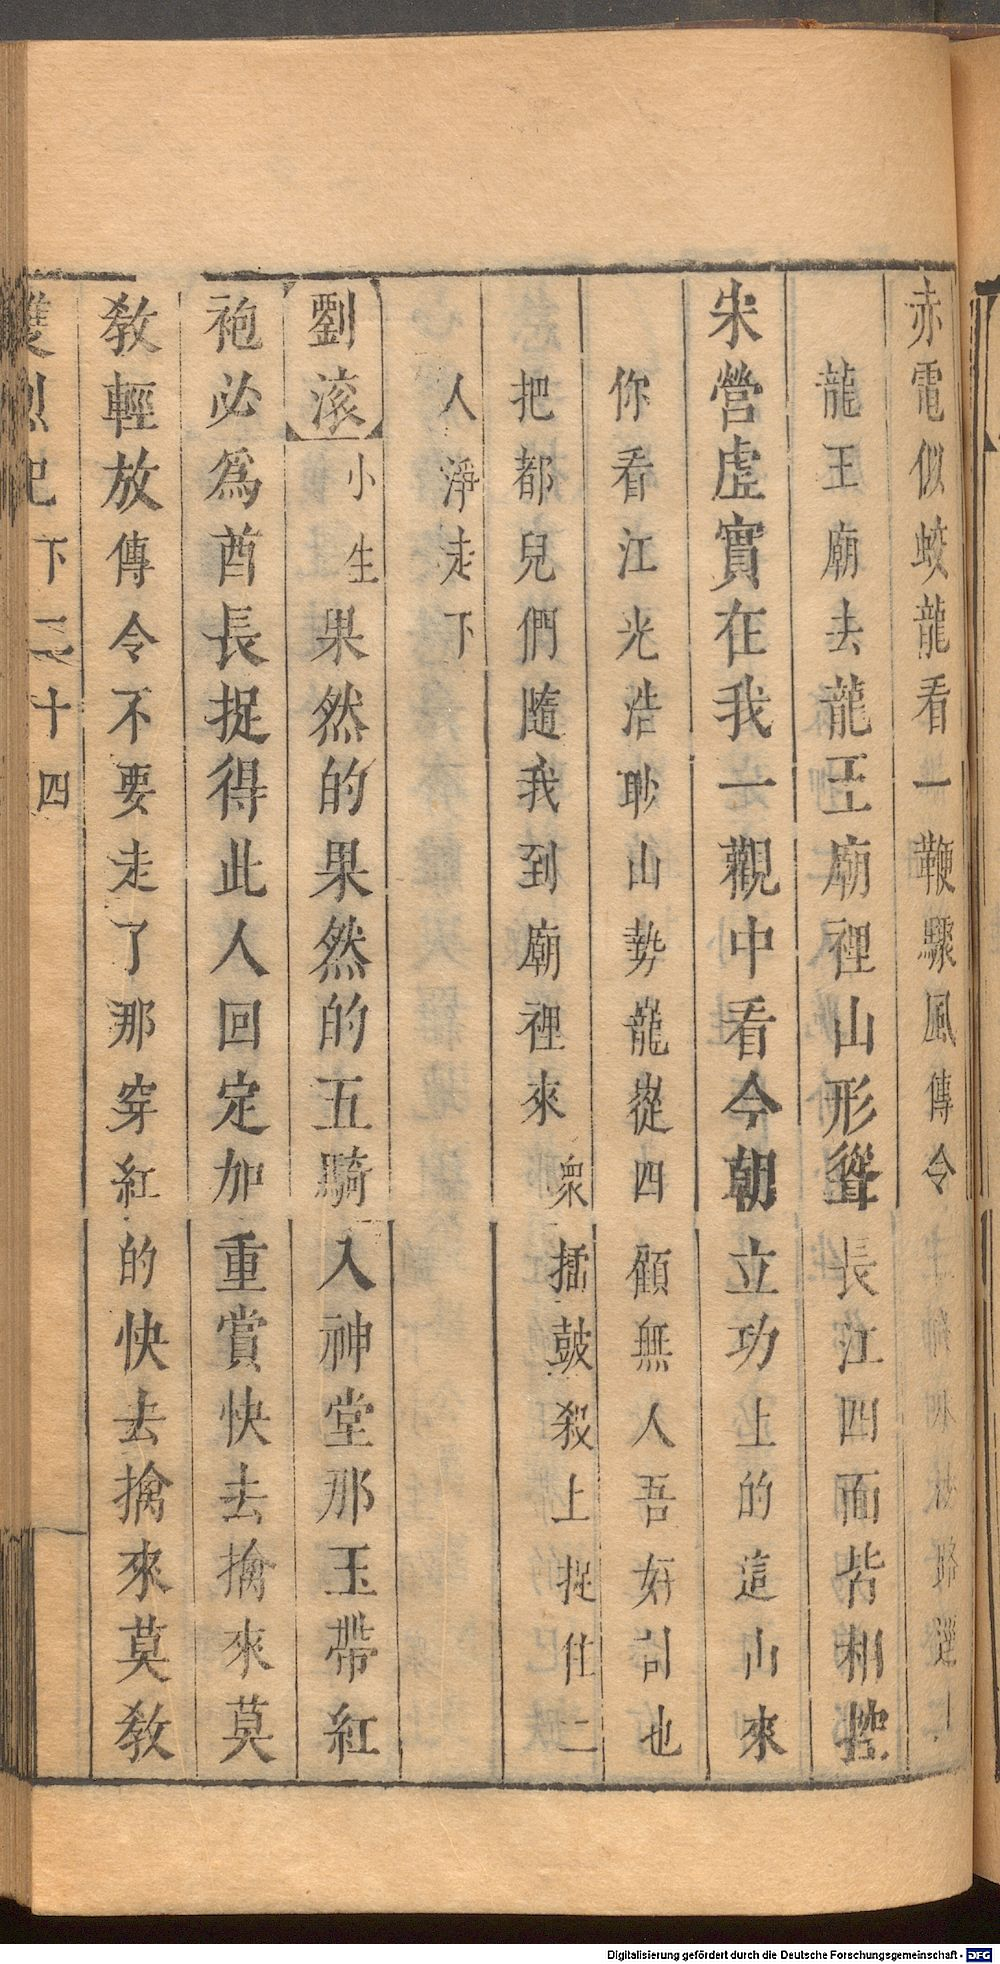 赤電似蛟龍看一鞭驟風傳令
龍王廟去龍王廟裡山形聳長江四面皆相控
朱營虛實在我一觀中看今朝立功上的這山來
你看江光浩耿山勢龍嵸四顧無人吾妍計也
把都兒們隨我到廟裡來衆擂鼓殺上捉住二
人淨走下
劉滚小生果然的果然的五騎入神堂那玉帶紅
袍必爲酋長捉得此人回定加重賞快去擒來莫
教輕放傳令不要走了那穿紅的快去擒來莫教
雙烈記下二十四
Digitalisierung gefördert durch die Deutsche Forschungsgemeinschaft - DFG